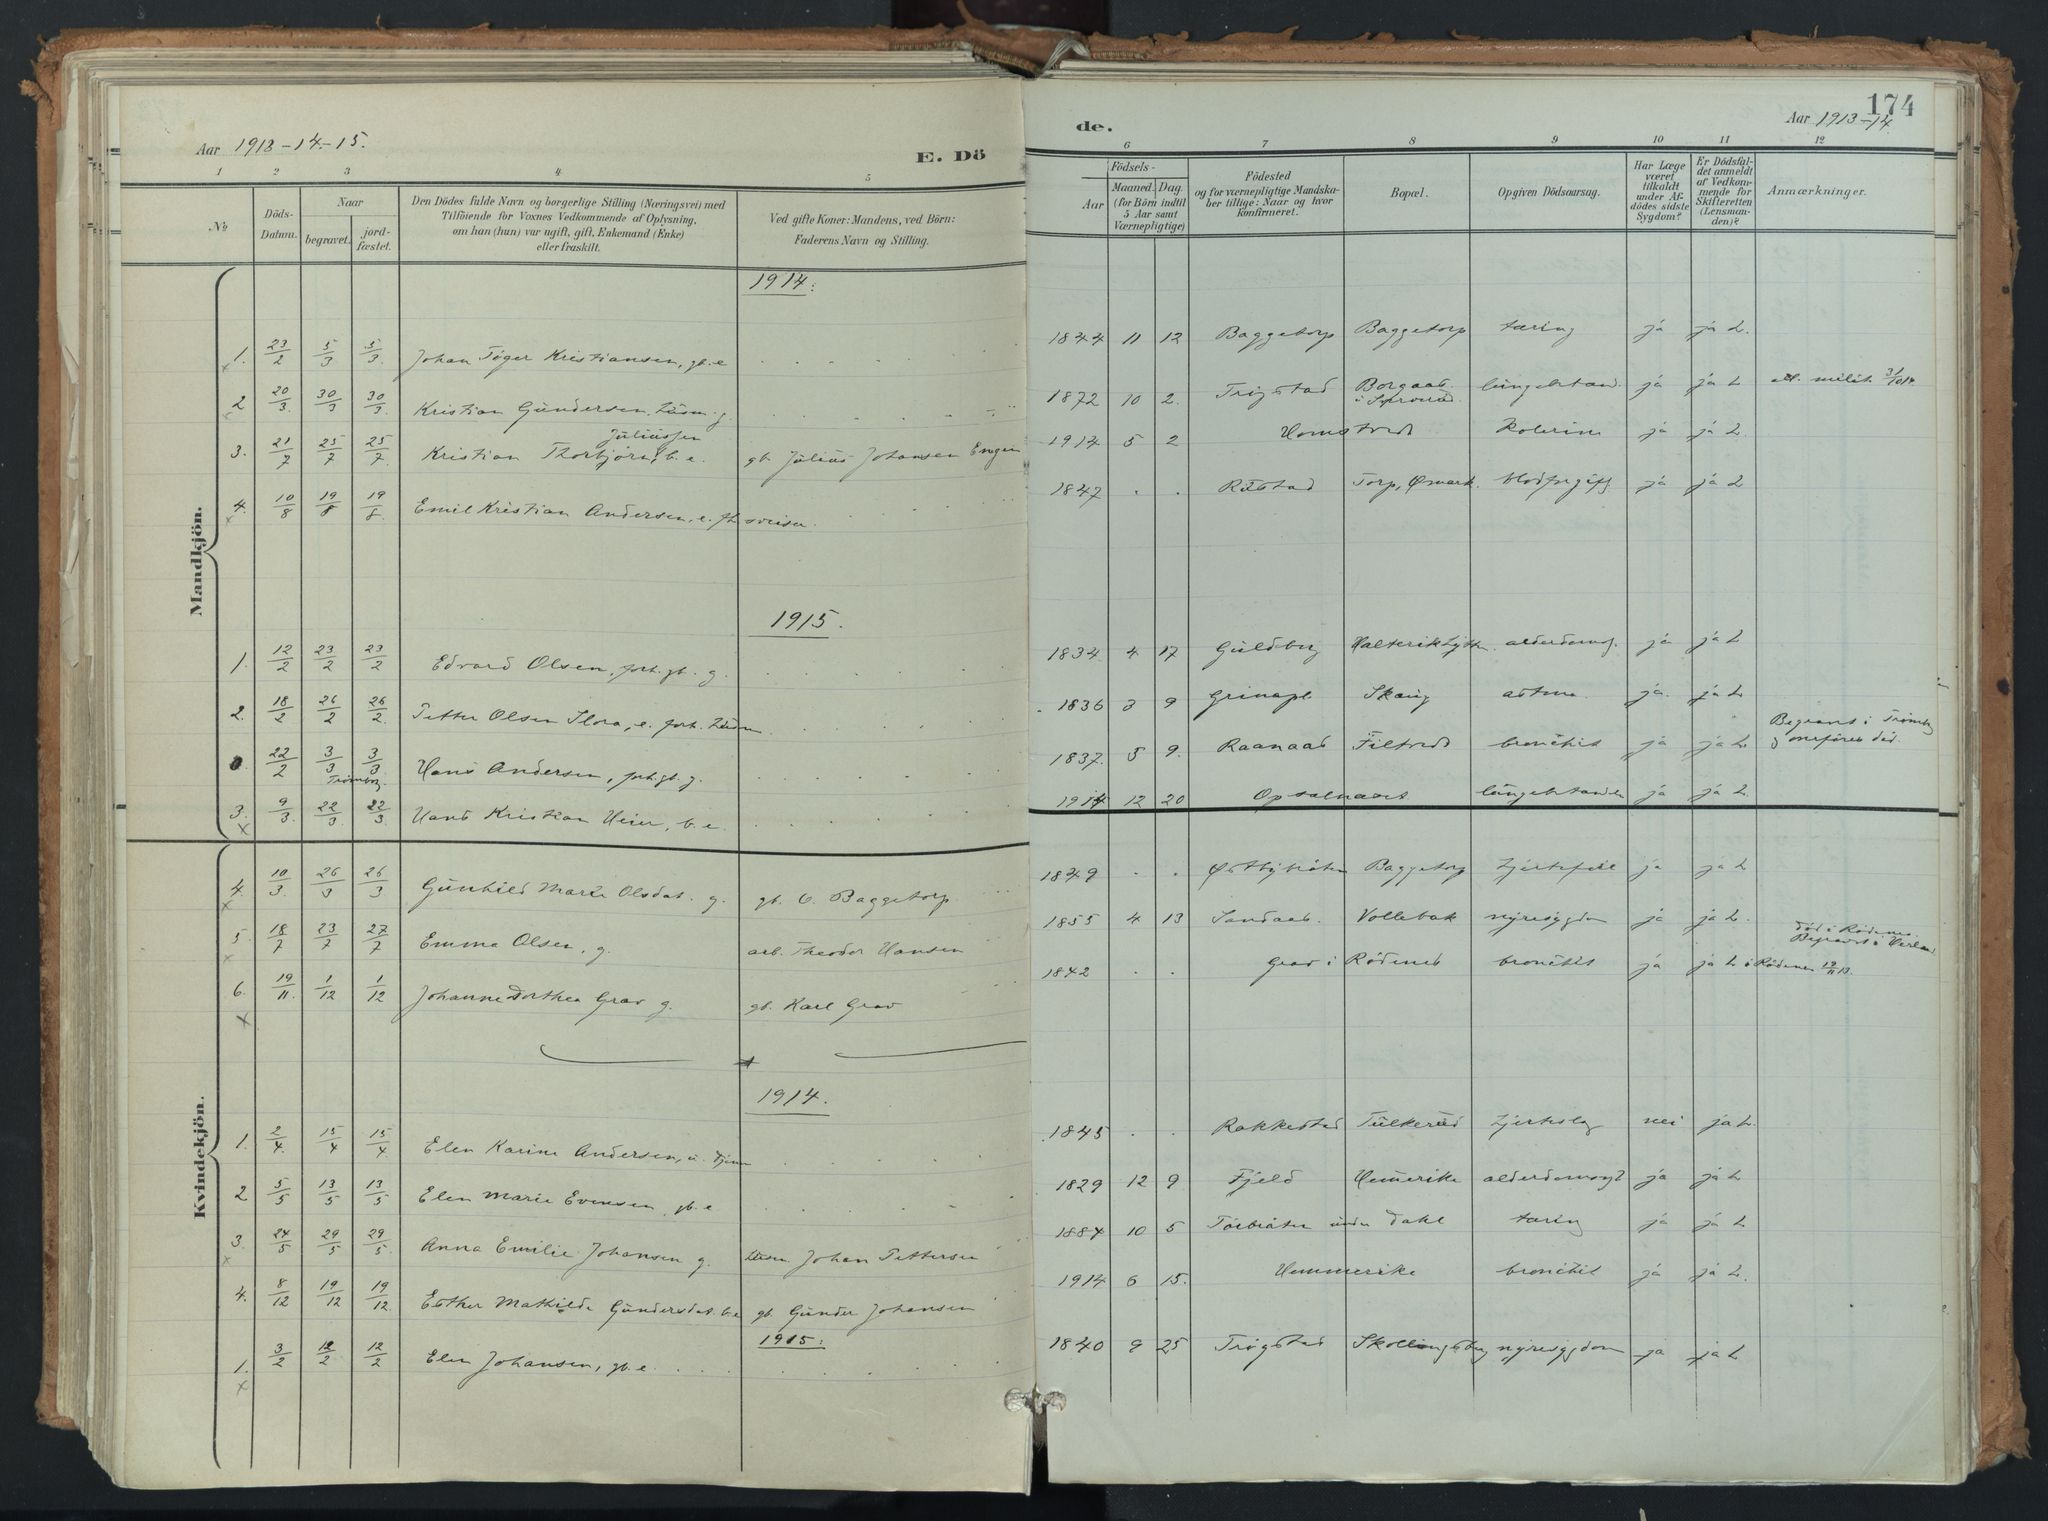 Aar 1913-14-15.
E. Dö
de.
174
Aar 1913-14
1 2 3 4 5
6 7 8 9 10 11 12
No
Döds-Datum.
Naar
begravet.
jord-fæstet.
Den Dödes fulde Navn og borgerlige Stilling (Næringsvei) med
Tilföiende for Voxnes Vedkommende af Oplysning,
om han (hun) var ugift, gift, Enkemand (Enke)
eller fraskilt.
Ved gifte Koner: Mandens, ved Börn:
Faderens Navn og Stilling.
Födsels-
Aar
Maaned. Dag.
(for Börn indtil
5 Aar samt
Værnepligtige)
Födested
og for værnepligtige Mandska-
ber tillige: Naar og hvor
konfirmeret.
Bopæl.
Opgiven Dödsaarsag.
Har Læge
været
tilkaldt
under Af-
dödes sidste
Sygdom?
Er Dödsfal-
det anmeldt
af Vedkom-
mende for
Skifteretten
(Lensman-
den)?
Anmærkninger.
Mandkjön.
1914:
1. 23/2 5/3 5/3 Johan Töger Kristiansen, gb. e 1844 11 12 Baggetorp Baggetorp tæring ja ja L.
2 20/3. 30/3 30/3 Kristian Gundersen, g. 1872 10 2. Trøgstad ja ja L milit.
3. 21/7 25/7 25/7 Kristian Thorbjørn Juliussen, b. e. gb. Julius Johansen Engen 1914 5 2 Kolerine ja ja L.
4. 10/8 19/8 19/8 Emil Kristian Andersen, e. 1847 . . Rustad Torp, Ømark. blodforgift ja ja L
1915.
1. 12/2 23/2 23/2 Edvard Olsen, forh. gb. g. 1834 4 17 Guldberg alderdomsv. ja ja L
2. 18/2 26/2 26/2. Petter Olsen Slora, e. forh. 1836 3 9 Skaug astma ja. ja L
22/2 3/3 3/3 Trømborg. Hans Andersen, forh. gb. g. 1837. 5 9. Raanaas bronchit ja ja L. Begravet i Trømborg
3. 9/3. 22/3. 22/3 Hans Kristian Heier, b. e. 1914 12 20 ja ja L.
Kvindekjön.
4. 10/3. 26/3 26/3 Gunhild Marie Olsdat. g. gb. O. Baggetorp. 1849 . . Østbybråten Baggetorp hjertefeil ja ja L
5. 18/7 23/7 27/7 Emma Olsen, g. arb. Theodor Hansen 1855 4 13 Sandaas. nyresygdom ja ja L.
6. 19/11. 1/12 1/12 Johanne Dorthea Grav g. gb. Karl Grav 1842 . . Grav i Rödenes bronchit ja ja L i Rödenes död i Rödenes. Begravet i
1914.
1. 2/4. 15/4 15/4 Elen Karine Andersen, u. 1845 . . Rakkestad Tulkerud hjerteslag nei ja L.
2 5/5 13/5 13/5 Elen Marie Evensen, gb. e 1829 12 9 Fjeld Hemerike ja ja L
3. 24/5 29/5 29/5. Anna Emilie Johansen g. Johan Pettersen 1884 10 5 under Dahl tæring ja ja L
4. 8/12 19/12 19/12. Esther Mathilde Gundersdat. b. e gb. Gunder Johansen 1914 6 15. Hemmerike bronchit ja ja L.
1915:
1. 3/2 12/2 12/2 Elen Johansen, gb. e. 1840 9 25 Trøgstad Skollingsberg nyresygdom ja ja L